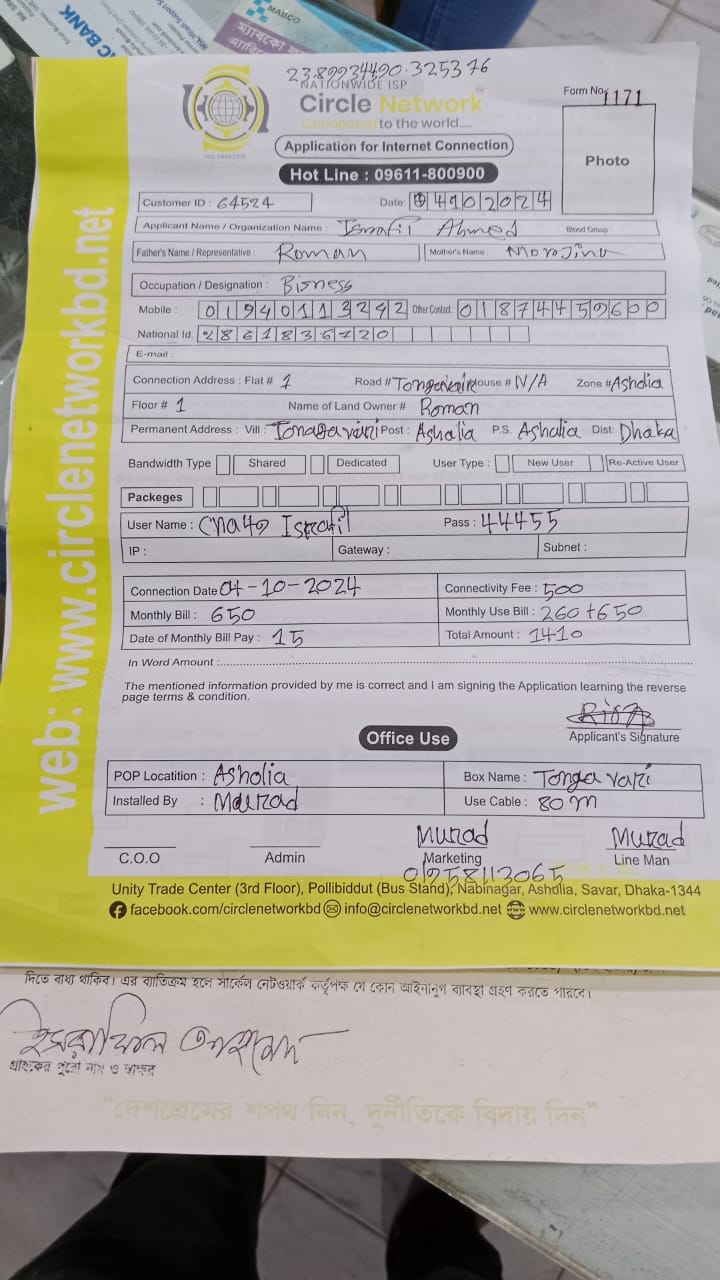 MABCO
C BANK
23.89934490.325376
NATIONWIDE ISP
Form No: 1171
Circle Network
Connected to the world.....
Application for Internet Connection
Photo
Hot Line : 09611-800900
Customer ID : 64524 Date: 04102024
Applicant Name / Organization Name : Israfil Ahmed Blood Group :
Father's Name / Representative : Roman Mother's Name : Morojina
Occupation / Designation : Bisness
Mobile : 01940113292 Other Contact : 01874459600
National Id: 2861836720
E-mail :
Connection Address : Flat # 1 Road # House # N/A Zone # Asholia
Floor # 1 Name of Land Owner # Roman
Permanent Address : Vill : Tongavari Post : Ashalia P.S. Ashalia Dist: Dhaka
Bandwidth Type Shared Dedicated User Type : New User Re-Active User
Packeges
User Name : Israfil Pass : 44455
IP : Gateway : Subnet :
Connection Date 04-10-2024 Connectivity Fee : 500
Monthly Bill : 650 Monthly Use Bill : 260+650
Date of Monthly Bill Pay : 15 Total Amount : 1410
In Word Amount :
The mentioned information provided by me is correct and I am signing the Application learning the reverse
page terms & condition.
Applicant's Signature
Office Use
POP Locatition : Asholia Box Name : Tonga vari
Installed By : Murad Use Cable : 80m
Murad Murad
C.O.O Admin Marketing Line Man
01958113065
Unity Trade Center (3rd Floor), Pollibiddut (Bus Stand), Nabinagar, Ashulia, Savar, Dhaka-1344
facebook.com/circlenetworkbd info@circlenetworkbd.net www.circlenetworkbd.net
web: www.circlenetworkbd.net
দিতে বাধ্য থাকিব। এর ব্যতিক্রম হলে সার্কেল নেটওয়ার্ক কর্তৃপক্ষ যে কোন আইনানুগ ব্যবস্থা গ্রহণ করতে পারবে।
ইসরাফিল আহমেদ
গ্রাহকের পুরো নাম ও স্বাক্ষর
"দেশপ্রেমের শপথ নিন, দুর্নীতিকে বিদায় দিন"